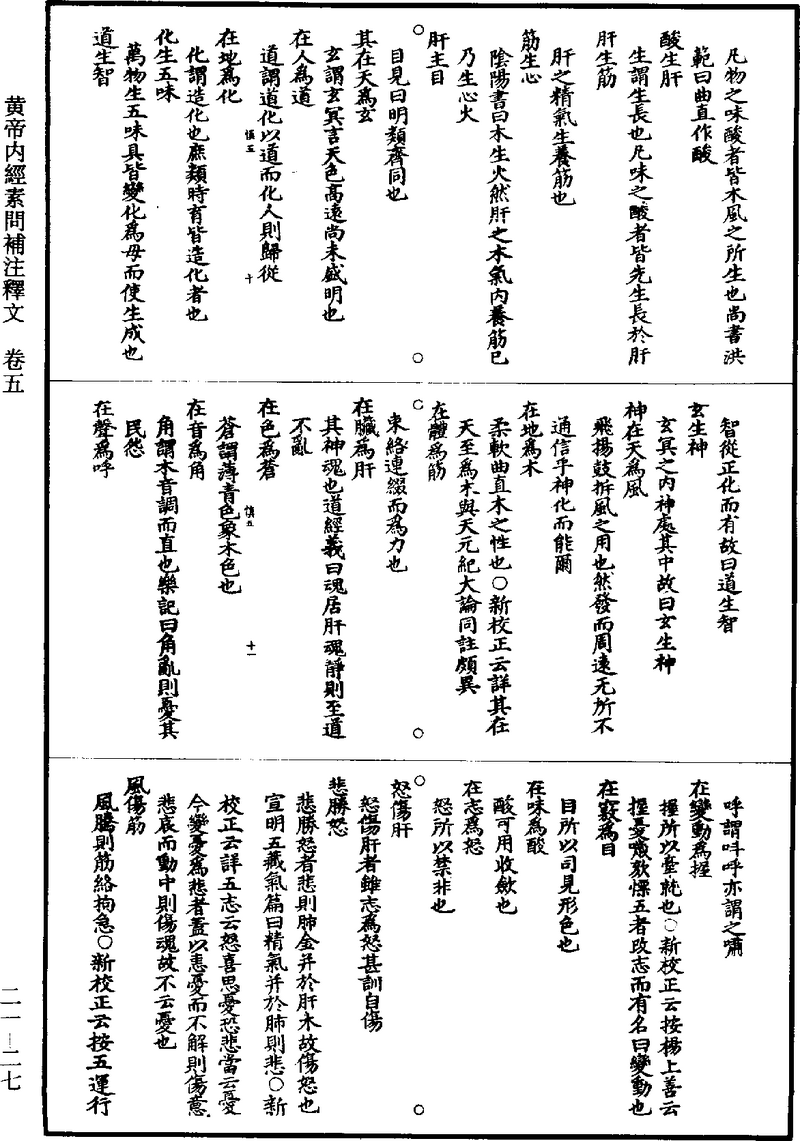 凡物之味酸者皆木風之所生也尚書洪
範曰曲直作酸
酸生肝
生謂生長也凡味之酸者皆先生長於肝
肝生筋
肝之精氣生養筋也
筋生心
陰陽書曰木生火然肝之木氣內養筋已
乃生心火
肝主目
目見曰明類齊同也
其在天為玄
玄謂玄冥言天色高遠尚未盛明也
在人為道
道謂道化以道而化人則歸從
慎五 十
在地為化
化謂造化也庶類時育皆造化者也
化生五味
萬物生五味具皆變化為母而使生成也
道生智
智從正化而有故曰道生智
玄生神
玄冥之內神處其中故曰玄生神
神在天為風
飛揚鼓拆風之用也然發而周遠无所不
通信乎神化而能爾
在地為木
柔軟曲直木之性也○新校正云詳其在
天至為木與天元紀大論同註頗異
在體為筋
束絡連綴而為力也
在臟為肝
其神魂也道經義曰魂居肝魂靜則至道
不亂
在色為蒼
慎五 十一
蒼謂薄青色象木色也
在音為角
角謂木音調而直也樂記曰角亂則憂其
民怨
在聲為呼
呼謂叫呼亦謂之嘯
在變動為握
握所以牽就也○新校正云按楊上善云
握憂噦欬慄五者改志而有名曰變動也
在竅為目
目所以司見形色也
在味為酸
酸可用收斂也
在志為怒
怒所以禁非也
怒傷肝
怒傷肝者雖志為怒甚訓自傷
悲勝怒
悲勝怒者悲則肺金并於肝木故傷怒也
宣明五藏氣篇曰精氣并於肺則悲○新
校正云詳五志云怒喜思憂恐悲當云憂
今變憂為悲者蓋以恚憂而不解則傷意
悲哀而動中則傷魂故不云憂也
風傷筋
風騰則筋絡拘急○新校正云按五運行
黄帝内經素問補注釋文 卷五
二一—二七